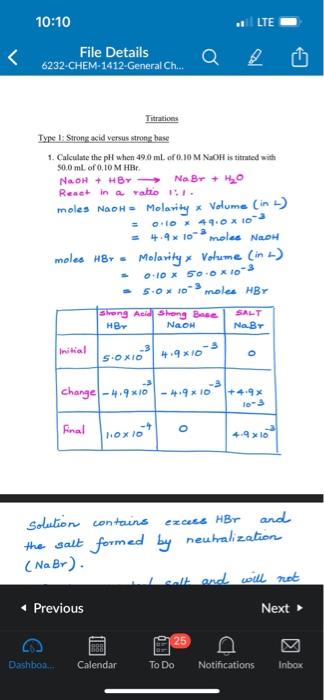 10:10
LTE
File Details
6232-CHEM-1412-General Ch...
Titrations
Type 1: Strong acid versus strong base
1. Calculate the pH when 49.0 mL of 0.10 M NaOH is titrated with
50.0 mL of 0.10 M HBr.
NaOH + HBr → NaBr + H₂O
React in a ratio 1:1.
moles NaOH = Molarity x Volume (in L)
= 0.10 x 49.0 x 10⁻³
= 4.9 x 10⁻³ moles NaOH
moles HBr = Molarity x Volume (in L)
= 0.10 x 50.0 x 10⁻³
= 5.0 x 10⁻³ moles HBr
Strong Acid Strong Base SALT
HBr NaOH NaBr
Initial 5.0x10⁻³ 4.9x10⁻³ 0
Change -4.9x10⁻³ -4.9x10⁻³ +4.9x
10⁻³
Final 1.0x10⁻⁴ 0 4.9x10⁻³
Solution contains excess HBr and
the salt formed by neutralization
(NaBr).
salt and will not
Previous
Next
25
Dashboa...
Calendar
To Do
Notifications
Inbox